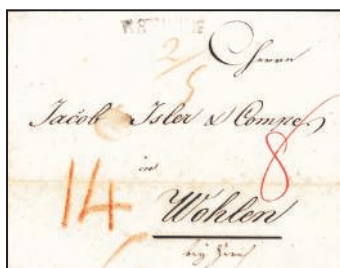 2/5
Herrn
Jacob Isler & Compe
in
8
14
Wohlen